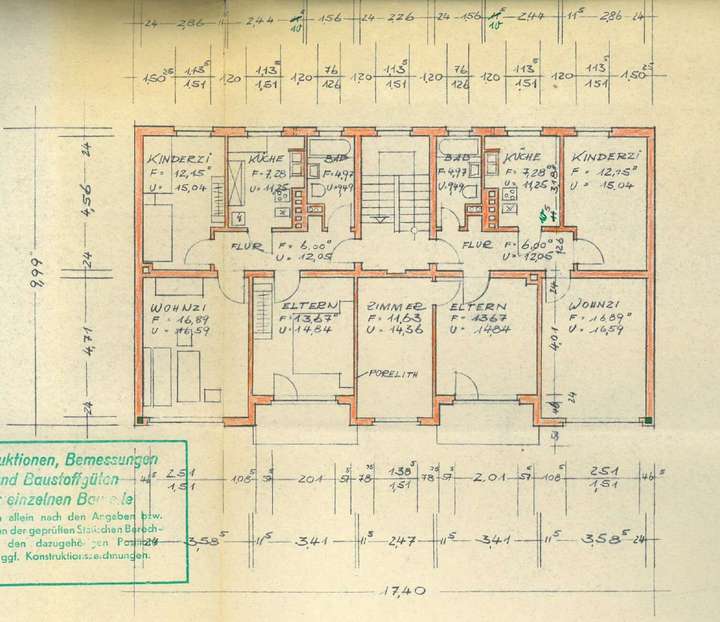 24 2,86 11⁵ 2,44 10 1,56 24 2,26 24 1,56 10 2,44 11⁵ 2,86 24
1,50²⁵ 1,13⁵ 1,20 1,13⁵ 1,20 76 1,20 1,13⁵ 1,20 76 1,20 1,13⁵ 1,20 1,13⁵ 1,50²⁵
1,51 1,51 126 1,51 126 1,51 1,51
KINDERZI KÜCHE BAD BAD KÜCHE KINDERZI
F = 12,15 F = 7,28 F = 4,97 F = 4,97 F = 7,28 F = 12,15
U = 15,04 U = 11,25 U = 9,49 U = 9,49 U = 11,25 U = 15,04
FLUR F = 6,00 FLUR F = 6,00
U = 12,05 U = 12,05
WOHNZI ELTERN ZIMMER ELTERN WOHNZI
F = 16,89 F = 13,67 F = 11,63 F = 13,67 F = 16,89
U = 16,59 U = 14,84 U = 14,36 U = 14,84 U = 16,59
PORELITH
24
4,56
24
9,99
4,71
24
3,18⁵
11⁵
1,26
24
4,01
24
46
51
uktionen, Bemessungen
nd Baustoffgüten
r einzelnen Bauteile
n allein nach den Angaben bzw.
en der geprüften Statischen Berech-
den dazugehörigen Positions-
ggf. Konstruktionszeichnungen.
46⁵ 2,51 1,08⁵ 51 2,01 51 78 1,38⁵ 78 51 2,01 51 1,08⁵ 2,51 46⁵
1,51 1,51 1,51
24 3,58⁵ 11⁵ 3,41 11⁵ 2,47 11⁵ 3,41 11⁵ 3,58⁵ 24
17,40